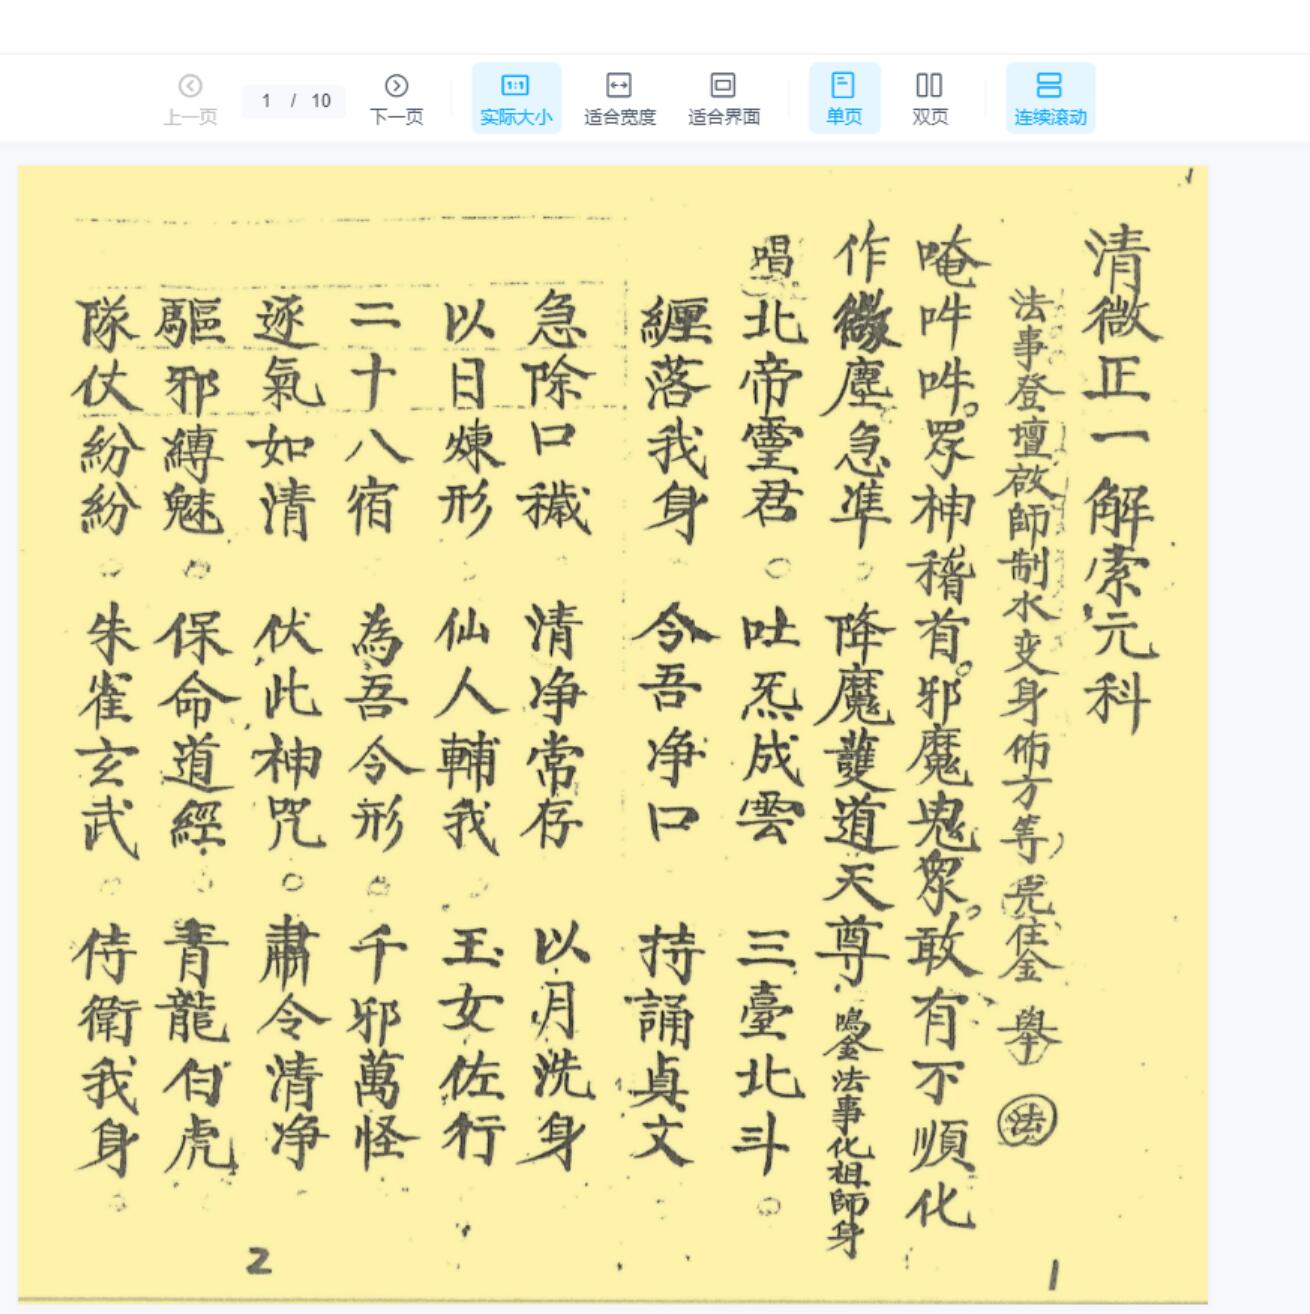 上一页
1 / 10
下一页
实际大小
适合宽度
适合界面
单页
双页
连续滚动
清微正一解索元科
法事登壇啟師制水变身佈方等完住金 舉 法
唵吽吽。眾神稽首。邪魔鬼眾。敢有不順化
作微塵急準 降魔護道天尊 鳴金法事化祖師身
唱北帝靈君 吐炁成雲 三臺北斗
纏落我身 令吾净口 持誦真文
急除口穢 清净常存 以月洗身
以日煉形 仙人輔我 玉女佐行
二十八宿 為吾令形 千邪萬怪
逐氣如清 伏此神咒 肅令清净
驅邪縛魅 保命道經 青龍白虎
隊仗紛紛 朱雀玄武 侍衛我身
1
2